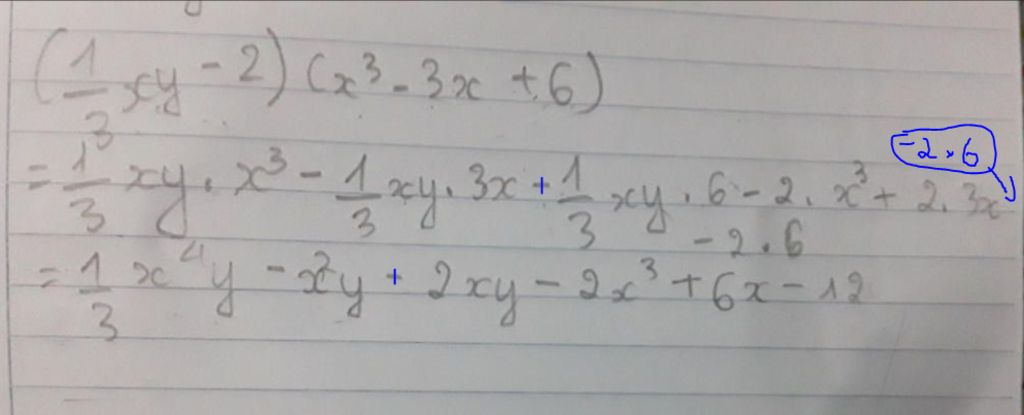 (1/3 xy - 2) (x³ - 3x + 6)
-2.6
= 1/3 xy . x³ - 1/3 xy . 3x + 1/3 xy . 6 - 2 . x³ + 2 . 3x
- 2 . 6
= 1/3 x⁴y - x²y + 2xy - 2x³ + 6x - 12